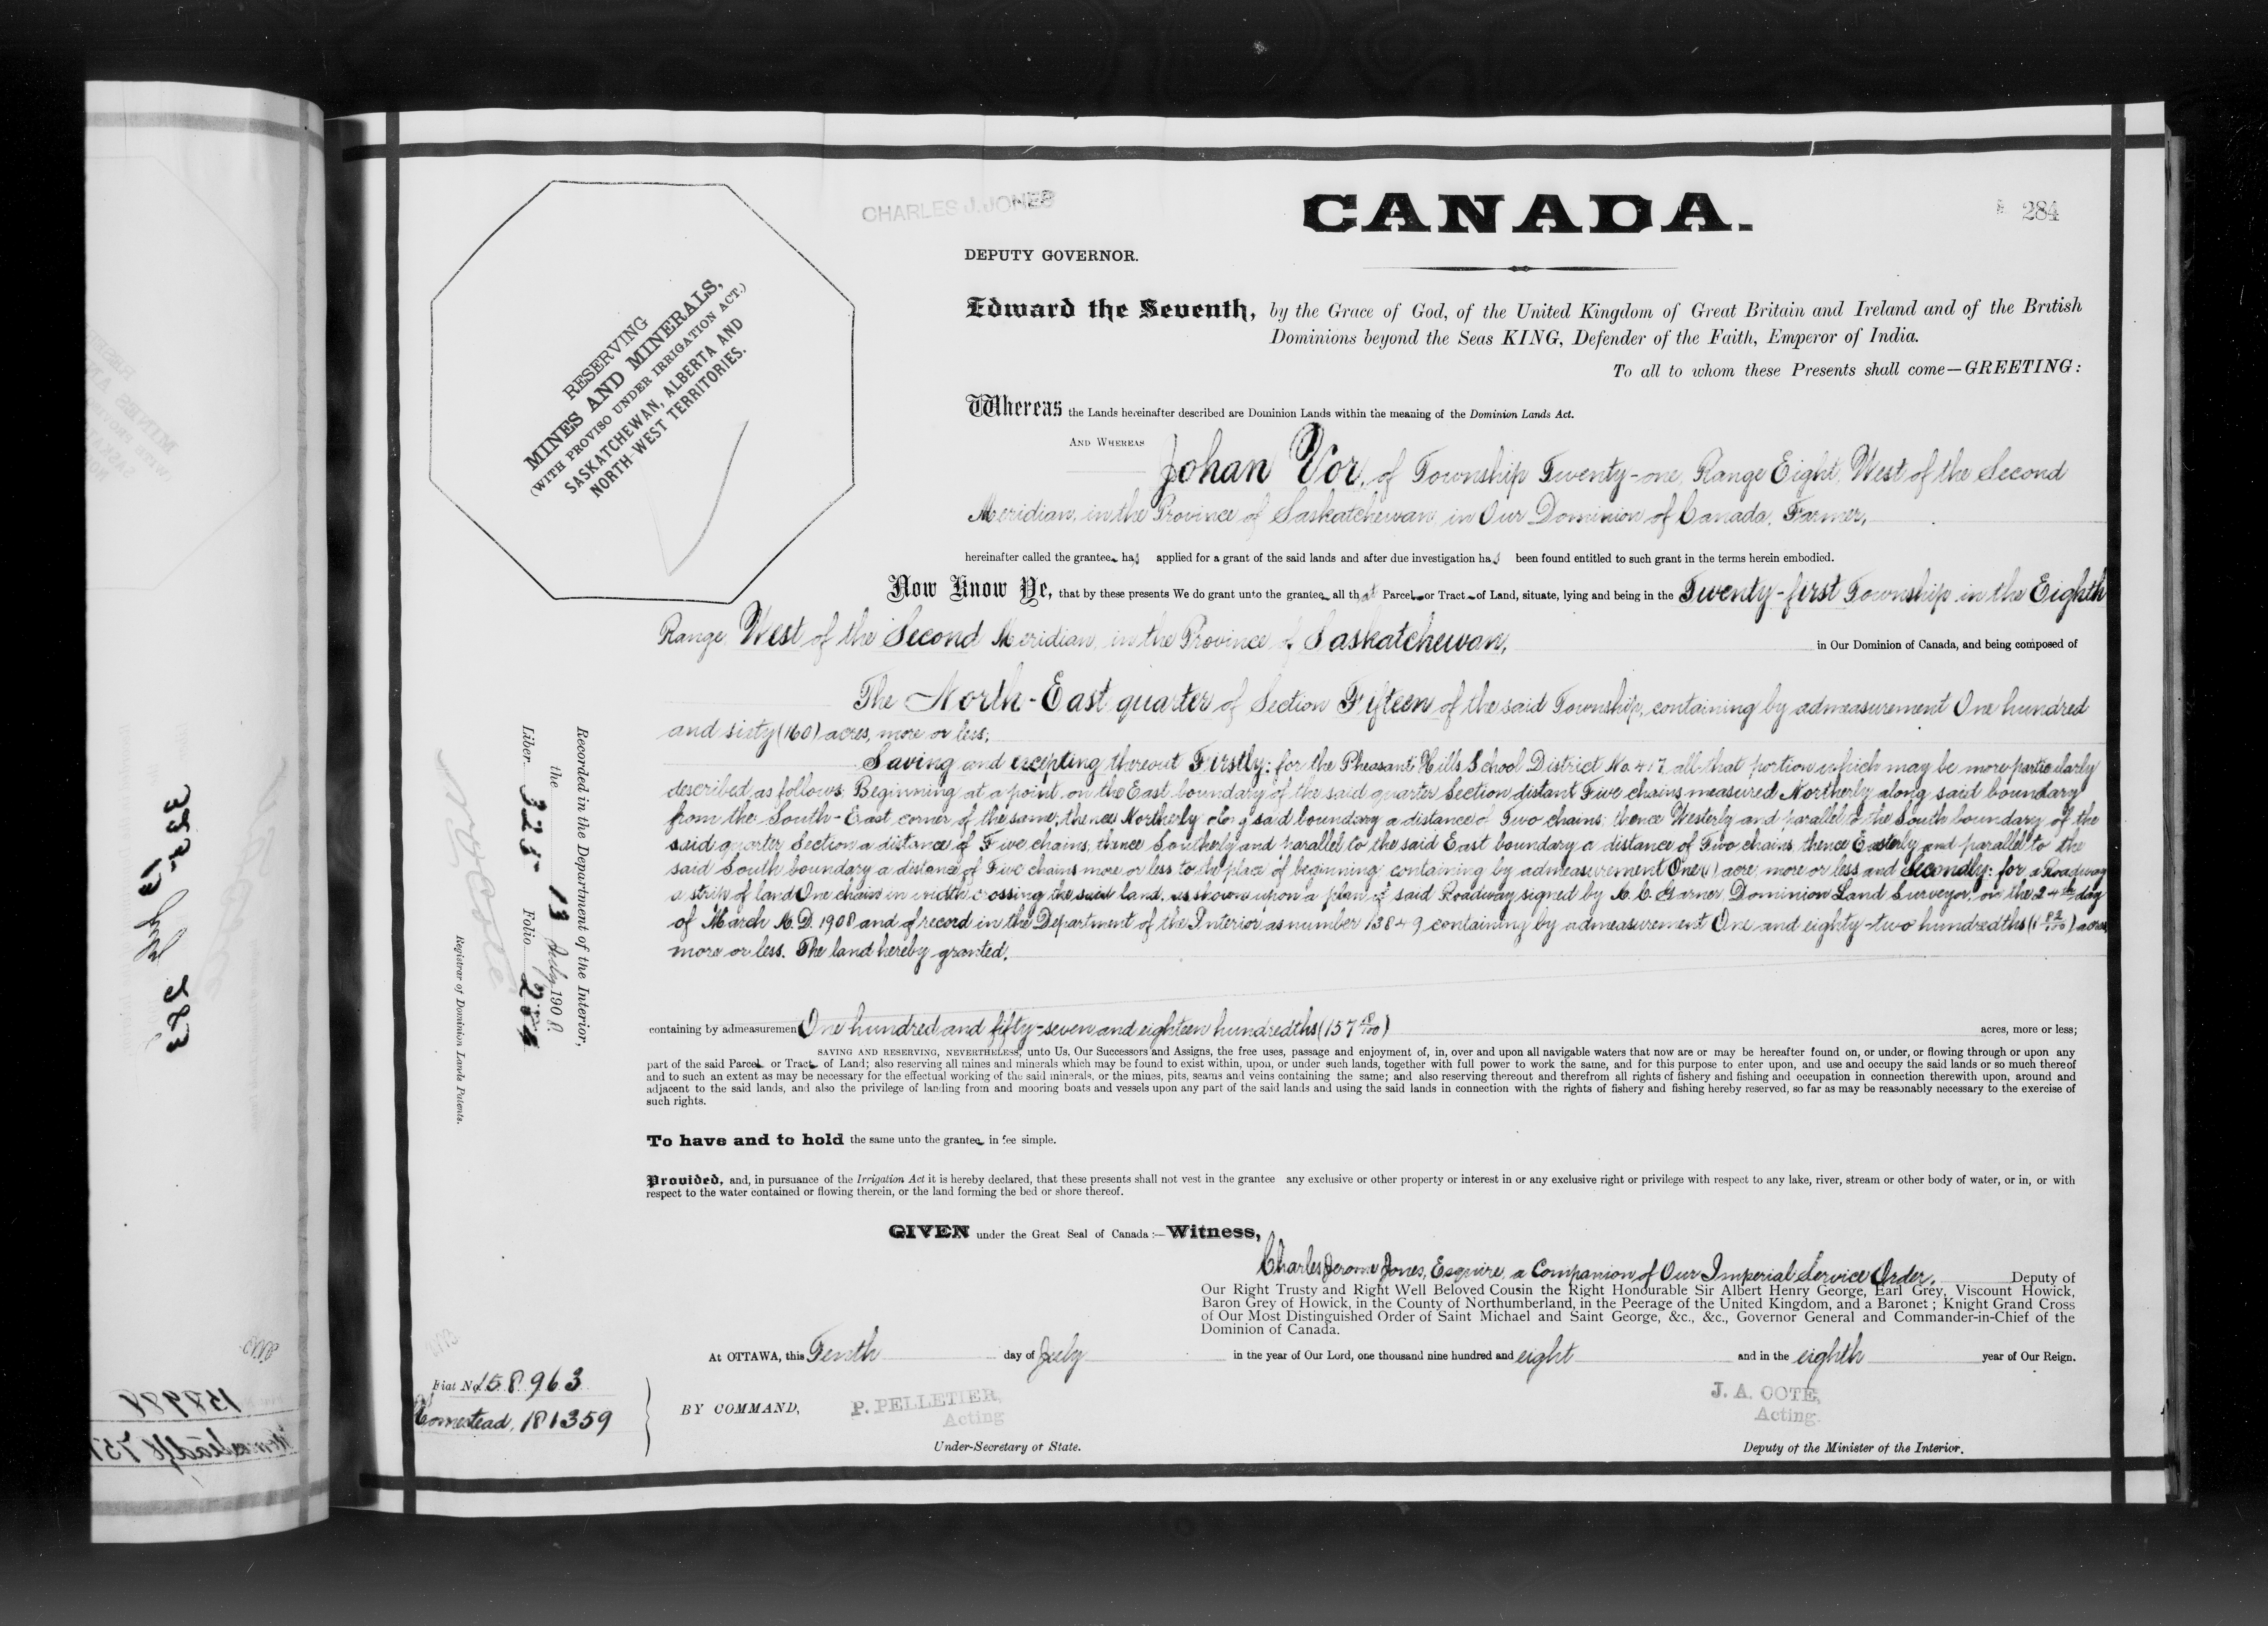 CHARLES J. JONES
CANADA.
284
DEPUTY GOVERNOR.
RESERVING
MINES AND MINERALS,
(WITH PROVISO UNDER IRRIGATION ACT.)
SASKATCHEWAN, ALBERTA AND
NORTH-WEST TERRITORIES.
Edward the Seventh, by the Grace of God, of the United Kingdom of Great Britain and Ireland and of the British
Dominions beyond the Seas KING, Defender of the Faith, Emperor of India.
To all to whom these Presents shall come—GREETING:
Whereas the Lands hereinafter described are Dominion Lands within the meaning of the Dominion Lands Act.
AND WHEREAS Johan Vor, of Township Twenty-one, Range Eight, West of the Second
Meridian, in the Province of Saskatchewan, in Our Dominion of Canada, Farmer,
hereinafter called the grantee has applied for a grant of the said lands and after due investigation has been found entitled to such grant in the terms herein embodied.
Now Know Ye, that by these presents We do grant unto the grantee all that Parcel or Tract of Land, situate, lying and being in the Twenty-first Township in the Eighth
Range West of the Second Meridian, in the Province of Saskatchewan, in Our Dominion of Canada, and being composed of
The North-East quarter of Section Fifteen of the said Township, containing by admeasurement One hundred
and sixty (160) acres, more or less;
Saving and excepting thereout Firstly: for the Pheasant Hills School District No. 417, all that portion which may be more particularly
described as follows: Beginning at a point on the East boundary of the said quarter Section distant Five chains measured Northerly along said boundary
from the South-East corner of the same; thence Northerly along said boundary a distance of Two chains; thence Westerly and parallel to the South boundary of the
said quarter Section a distance of Five chains; thence Southerly and parallel to the said East boundary a distance of Two chains, thence Easterly and parallel to the
said South boundary a distance of Five chains more or less to the place of beginning containing by admeasurement One (1) acre more or less and Secondly: for a Roadway
a strip of land One chain in width crossing the said land, as shown upon a plan of said Roadway signed by A. C. Garner, Dominion Land Surveyor, on the 24th day
of March A.D. 1908 and of record in the Department of the Interior as number 13849 containing by admeasurement One and eighty-two hundredths (1 82/100) acres
more or less. The land hereby granted,
containing by admeasuremen One hundred and fifty-seven and eighteen hundredths (157 18/100) acres, more or less;
SAVING AND RESERVING, NEVERTHELESS, unto Us, Our Successors and Assigns, the free uses, passage and enjoyment of, in, over and upon all navigable waters that now are or may be hereafter found on, or under, or flowing through or upon any
part of the said Parcel or Tract of Land; also reserving all mines and minerals which may be found to exist within, upon, or under such lands, together with full power to work the same, and for this purpose to enter upon, and use and occupy the said lands or so much thereof
and to such an extent as may be necessary for the effectual working of the said minerals, or the mines, pits, seams and veins containing the same; and also reserving thereout and therefrom all rights of fishery and fishing and occupation in connection therewith upon, around and
adjacent to the said lands, and also the privilege of landing from and mooring boats and vessels upon any part of the said lands and using the said lands in connection with the rights of fishery and fishing hereby reserved, so far as may be reasonably necessary to the exercise of
such rights.
To have and to hold the same unto the grantee in fee simple.
Provided, and, in pursuance of the Irrigation Act it is hereby declared, that these presents shall not vest in the grantee any exclusive or other property or interest in or any exclusive right or privilege with respect to any lake, river, stream or other body of water, or in, or with
respect to the water contained or flowing therein, or the land forming the bed or shore thereof.
GIVEN under the Great Seal of Canada:—Witness,
Charles Jerome Jones, Esquire, a Companion of Our Imperial Service Order, Deputy of
Our Right Trusty and Right Well Beloved Cousin the Right Honourable Sir Albert Henry George, Earl Grey, Viscount Howick,
Baron Grey of Howick, in the County of Northumberland, in the Peerage of the United Kingdom, and a Baronet; Knight Grand Cross
of Our Most Distinguished Order of Saint Michael and Saint George, &c., &c., Governor General and Commander-in-Chief of the
Dominion of Canada.
At OTTAWA, this Tenth day of July in the year of Our Lord, one thousand nine hundred and eight and in the eighth year of Our Reign.
BY COMMAND,
P. PELLETIER,
Acting
Under-Secretary of State.
J. A. COTE,
Acting.
Deputy of the Minister of the Interior.
Fiat No. 158963
Homestead, 181359
Recorded in the Department of the Interior,
the 13 July 1908
Liber 325 Folio 284
N. O. Coté
Registrar of Dominion Lands Patents.